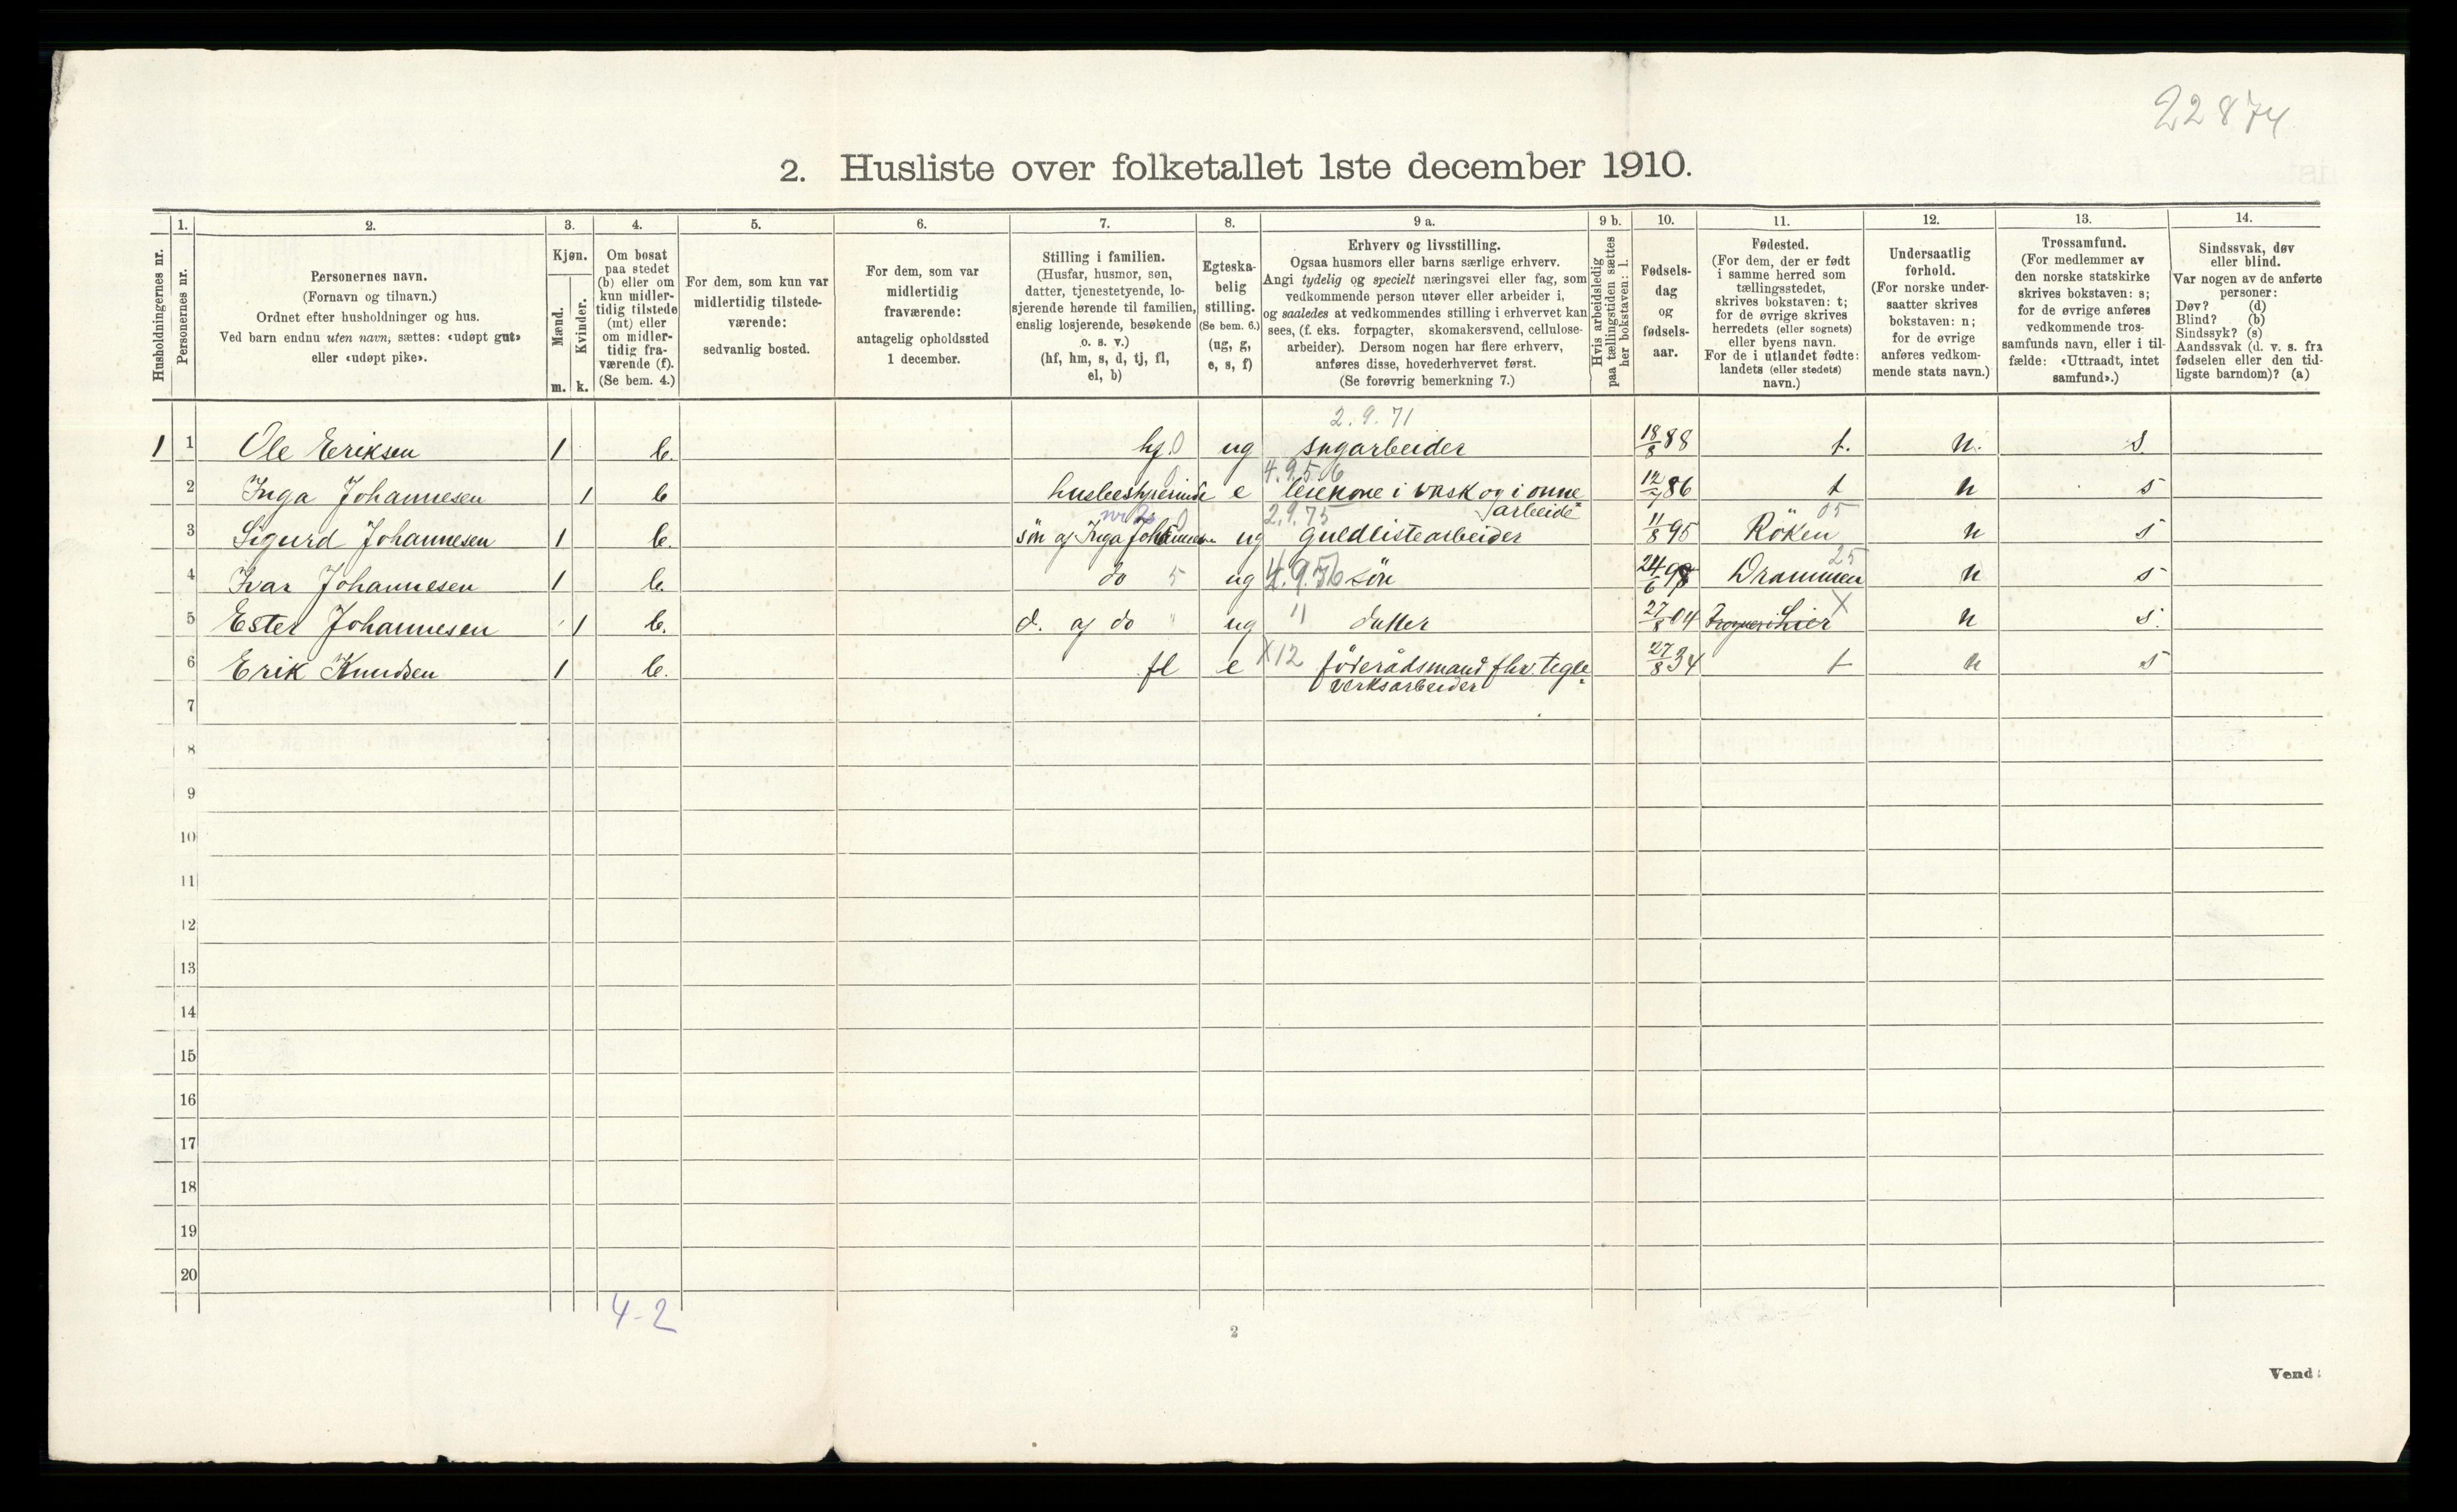 22874
2. Husliste over folketallet 1ste december 1910.
1. 2. 3. 4. 5. 6. 7. 8. 9 a. 9 b. 10. 11. 12. 13. 14.
Husholdningernes nr.
Personernes nr.
Personernes navn.
(Fornavn og tilnavn.)
Ordnet efter husholdninger og hus.
Ved barn endnu uten navn, sættes: «udøpt gut»
eller «udøpt pike».
Kjøn.
Mænd.
Kvinder.
m. k.
Om bosat
paa stedet
(b) eller om
kun midler-
tidig tilstede
(mt) eller
om midler-
tidig fra-
værende (f).
(Se bem. 4.)
For dem, som kun var
midlertidig tilstede-
værende:
sedvanlig bosted.
For dem, som var
midlertidig
fraværende:
antagelig opholdssted
1 december.
Stilling i familien.
(Husfar, husmor, søn,
datter, tjenestetyende, lo-
sjerende hørende til familien,
enslig losjerende, besøkende
o. s. v.)
(hf, hm, s, d, tj, fl,
el, b)
Egteska-
belig
stilling.
(Se bem. 6.)
(ug, g,
e, s, f)
Erhverv og livsstilling.
Ogsaa husmors eller barns særlige erhverv.
Angi tydelig og specielt næringsvei eller fag, som
vedkommende person utøver eller arbeider i,
og saaledes at vedkommendes stilling i erhvervet kan
sees, (f. eks. forpagter, skomakersvend, cellulose-
arbeider). Dersom nogen har flere erhverv,
anføres disse, hovederhvervet først.
(Se forøvrig bemerkning 7.)
Hvis arbeidsledig
paa tællingstiden sættes
her bokstaven: l.
Fødsels-
dag
og
fødsels-
aar.
Fødested.
(For dem, der er født
i samme herred som
tællingsstedet,
skrives bokstaven: t;
for de øvrige skrives
herredets (eller sognets)
eller byens navn.
For de i utlandet fødte:
landets (eller stedets)
navn.)
Undersaatlig
forhold.
(For norske under-
saatter skrives
bokstaven: n;
for de øvrige
anføres vedkom-
mende stats navn.)
Trossamfund.
(For medlemmer av
den norske statskirke
skrives bokstaven: s;
for de øvrige anføres
vedkommende tros-
samfunds navn, eller i til-
fælde: «Uttraadt, intet
samfund».)
Sindssvak, døv
eller blind.
Var nogen av de anførte
personer:
Døv? (d)
Blind? (b)
Sindssyk? (s)
Aandssvak (d. v. s. fra
fødselen eller den tid-
ligste barndom)? (a)
2.9.71
1 1 Ole Eriksen 1 b. hf. 0 ug sagarbeider 18/8 88 t. n. s.
4.9.5.6
2 Inga Johannesen 1 b husbestyrerinde e leiekone i vask og i onne 12/7 86 t n s
nr 2 0 2.9.75 arbeide 05
3 Sigurd Johannesen 1 b. søn af Inga Johannesen ug Guldlistearbeider 11/8 95 Röken n s
25
4 Ivar Johannesen 1 b. do 5 ug 4.9.56 søn 24/6 98 Drammen n s
X
5 Ester Johannesen 1 b. d. af do " ug " datter 27/8 04 Lier n s.
6 Erik Knudsen 1 b. fl e X12 föderådsmand fhv. tegl=
verksarbeider 27/8 34 t n s
7
8
9
10
11
12
13
14
15
16
17
18
19
20
4-2
2
Vend!